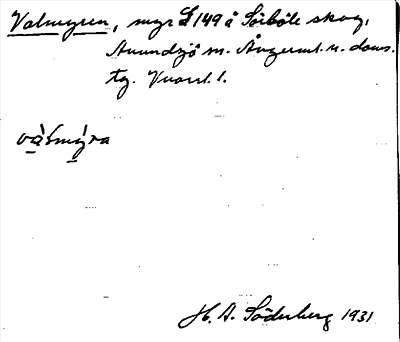 Valmyren, myr S 149 å Söiböle skog,
Anundsjö sn. Ångerml. n. doms.
tg. Vuorl 1.
vàlmýra
H. A. Söderberg 1931